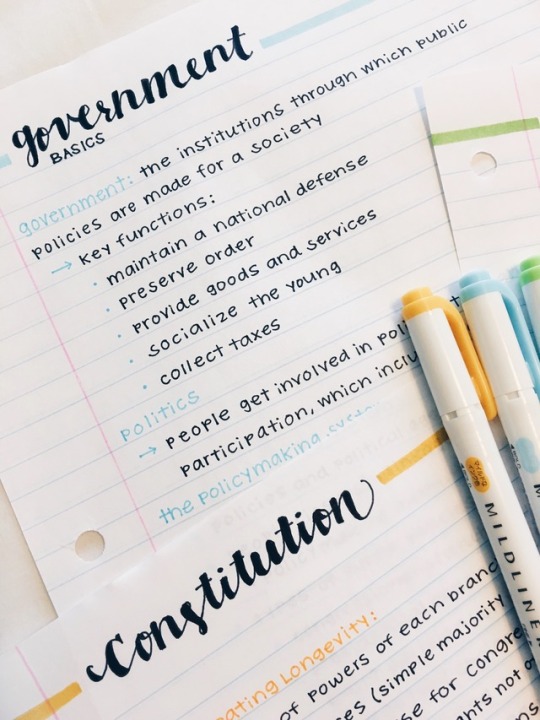 government
BASICS
government: the institutions through which public
policies are made for a society
→ key functions:
· maintain a national defense
· preserve order
· provide goods and services
· socialize the young
· collect taxes
politics
→ people get involved in
participation, which
the policymaking system
Constitution
Longevity:
of powers of each
(simple majority
for
not
MILDLINER